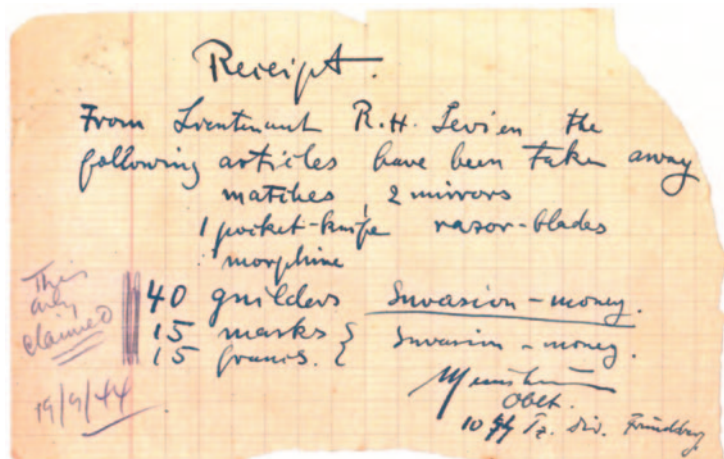 Receipt.
From Lieutenant R.H. Levien the
following articles have been taken away
matches, 2 mirrors
1 pocket-knife razor-blades
morphine
40 guilders Invasion-money.
15 marks } Invasion-money.
15 francs. }
Oblt.
10 SS Pz. Div. Frundsberg
This
only
claimed
19/9/44